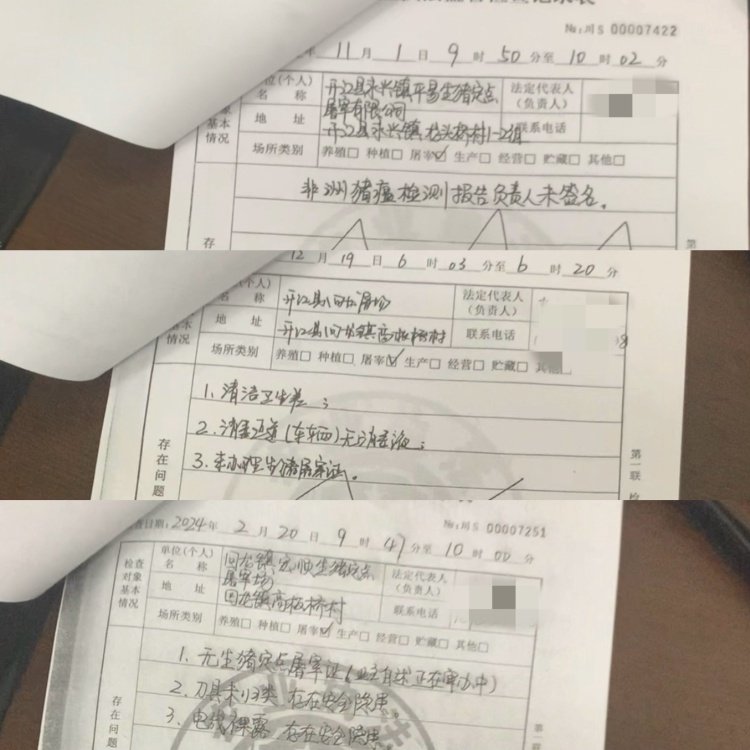 №:川S 00007422
年 11 月 1 日 9 时 50 分至 10 时 02 分
位(个人)
名 称
开江县永兴镇平易生猪定点
屠宰有限公司
法定代表人
(负责人)
对象
基本
情况
地 址
开江县永兴镇龙头桥村1-2组
联系电话
场所类别 养殖□ 种植□ 屠宰☑ 生产□ 经营□ 贮藏□ 其他□
非洲猪瘟检测报告负责人未签名。
存
第
12 月 19 日 6 时 03 分至 6 时 20 分
(个人)
名 称
开江县回龙屠场
法定代表人
(负责人)
基本
情况
地 址
开江县回龙镇高板桥村
联系电话
8
场所类别 养殖□ 种植□ 屠宰☑ 生产□ 经营□ 贮藏□ 其他
1.清洁卫生差;
2.消毒通道(车辆)无消毒液;
3.未办理生猪屠宰证。
存在问题
第一联
№:川S 00007251
查日期:2024年 2 月 20 日 9 时 47 分至 10 时 00 分
检查
对象
基本
情况
单位(个人)
名 称
回龙镇宏顺生猪定点
屠宰场
法定代表人
(负责人)
地 址
回龙镇高板桥村
联系电话
场所类别 养殖□ 种植□ 屠宰☑ 生产□ 经营□ 贮藏□ 其他□
1.无生猪定点屠宰证(业主自述正在审办中)
2.刀具未归类 存在安全隐患。
3.电线裸露 存在安全隐患
存在问题
第一